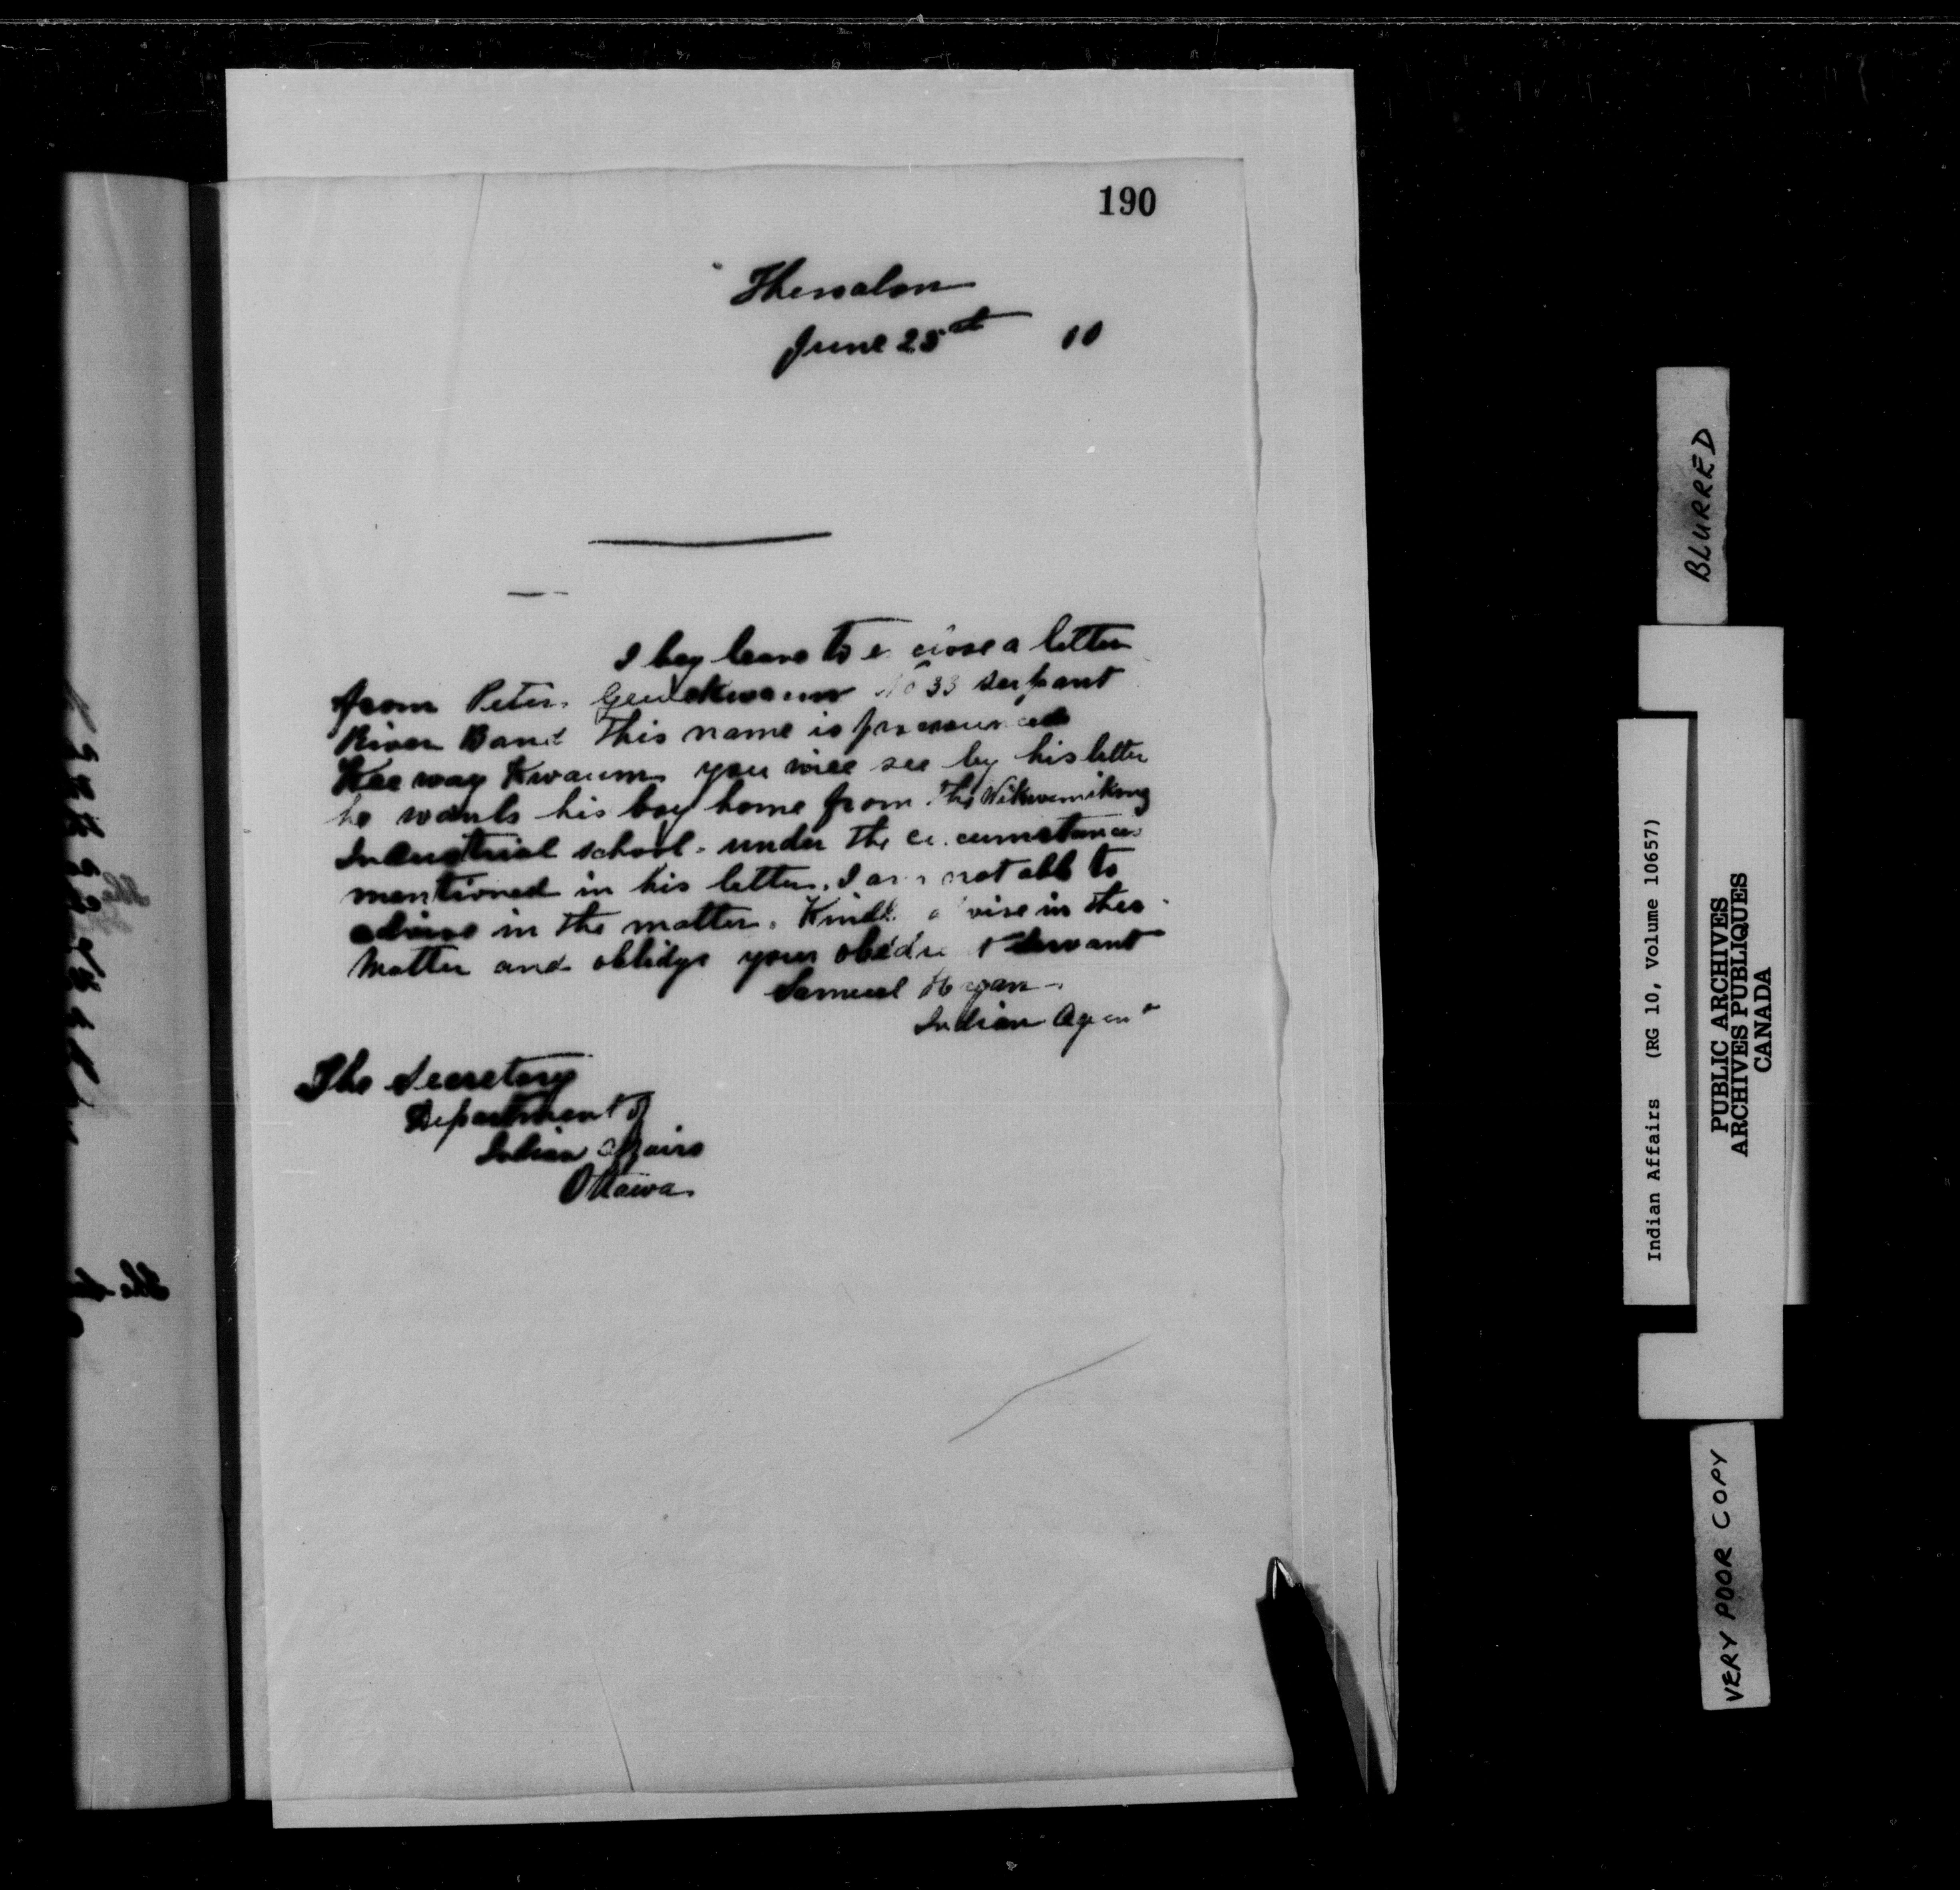 190
Thessalon
June 25th 10
I beg leave to enclose a letter
from Peter No 33 Serpant
River Band This name is pronounced
Kee way Kwaum you will see by his letter
he wants his boy home from the Wikwemikong
Industrial school. under the circumstances
mentioned in his letter. I am not able to
advise in the matter. Kindly advise in this
matter and oblidge your obedient servant
Samuel Hagan
Indian Agent
The Secretary
Department of
Indian Affairs
Ottawa
BLURRED
Indian Affairs (RG 10, Volume 10657)
PUBLIC ARCHIVES
ARCHIVES PUBLIQUES
CANADA
VERY POOR COPY